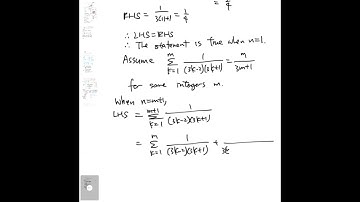 = 1/4
RHS = 1/(3(1)+1) = 1/4
∴ LHS = RHS
∴ The statement is true when n=1.
Assume \sum_{k=1}^{m} 1/((3k-2)(3k+1)) = m/(3m+1)
for some integers m.
When n=m+1,
LHS = \sum_{k=1}^{m+1} 1/((3k-2)(3k+1))
= \sum_{k=1}^{m} 1/((3k-2)(3k+1)) +